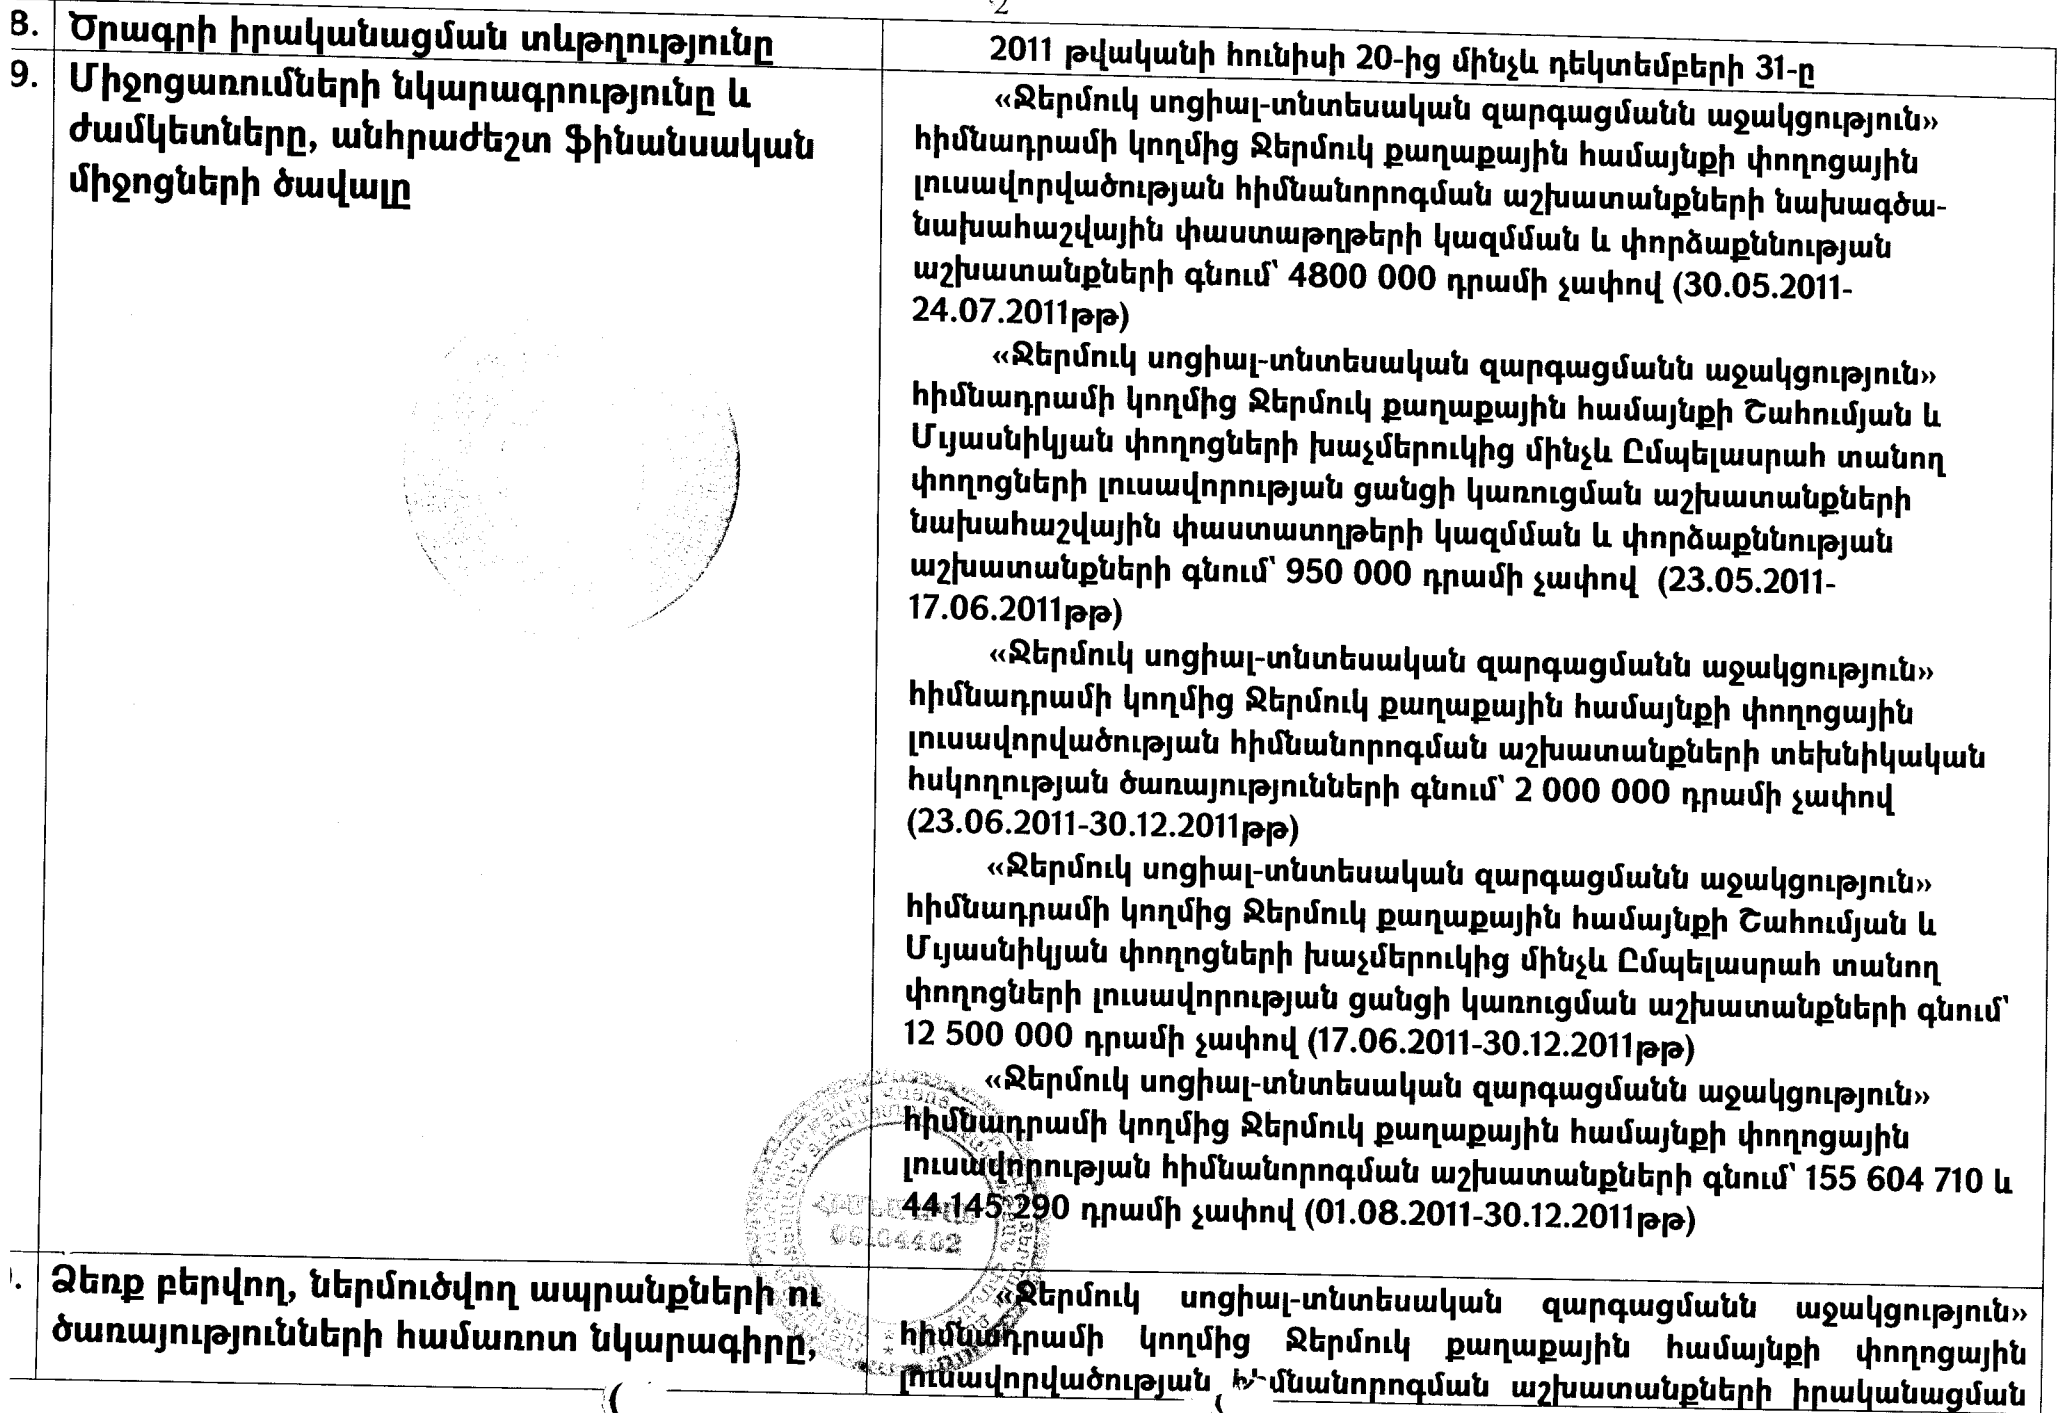 2
8. Ծրագրի իրականացման տևթղությունը
2011 թվականի հունիսի 20-ից մինչև դեկտեմբերի 31-ը
9. Միջոցառումների նկարագրությունը և
ժամկետները, անհրաժեշտ ֆինանսական
միջոցների ծավալը
«Ջերմուկ սոցիալ-տնտեսական զարգացմանն աջակցություն»
հիմնադրամի կողմից Ջերմուկ քաղաքային համայնքի փողոցային
լուսավորվածության հիմնանորոգման աշխատանքների նախագծա-
նախահաշվային փաստաթղթերի կազմման և փորձաքննության
աշխատանքների գնում՝ 4800 000 դրամի չափով (30.05.2011-
24.07.2011թթ)
«Ջերմուկ սոցիալ-տնտեսական զարգացմանն աջակցություն»
հիմնադրամի կողմից Ջերմուկ քաղաքային համայնքի Շահումյան և
Մյասնիկյան փողոցների խաչմերուկից մինչև Ըմպելասրահ տանող
փողոցների լուսավորության ցանցի կառուցման աշխատանքների
նախահաշվային փաստատղթերի կազմման և փորձաքննության
աշխատանքների գնում՝ 950 000 դրամի չափով (23.05.2011-
17.06.2011թթ)
«Ջերմուկ սոցիալ-տնտեսական զարգացմանն աջակցություն»
հիմնադրամի կողմից Ջերմուկ քաղաքային համայնքի փողոցային
լուսավորվածության հիմնանորոգման աշխատանքների տեխնիկական
հսկողության ծառայությունների գնում՝ 2 000 000 դրամի չափով
(23.06.2011-30.12.2011թթ)
«Ջերմուկ սոցիալ-տնտեսական զարգացմանն աջակցություն»
հիմնադրամի կողմից Ջերմուկ քաղաքային համայնքի Շահումյան և
Մյասնիկյան փողոցների խաչմերուկից մինչև Ըմպելասրահ տանող
փողոցների լուսավորության ցանցի կառուցման աշխատանքների գնում՝
12 500 000 դրամի չափով (17.06.2011-30.12.2011թթ)
«Ջերմուկ սոցիալ-տնտեսական զարգացմանն աջակցություն»
հիմնադրամի կողմից Ջերմուկ քաղաքային համայնքի փողոցային
լուսավորության հիմնանորոգման աշխատանքների գնում՝ 155 604 710 և
44 145 290 դրամի չափով (01.08.2011-30.12.2011թթ)
Ձեռք բերվող, ներմուծվող ապրանքների ու
ծառայությունների համառոտ նկարագիրը,
«Ջերմուկ սոցիալ-տնտեսական զարգացմանն աջակցություն»
հիմնադրամի կողմից Ջերմուկ քաղաքային համայնքի փողոցային
լուսավորվածության հիմնանորոգման աշխատանքների իրականացման